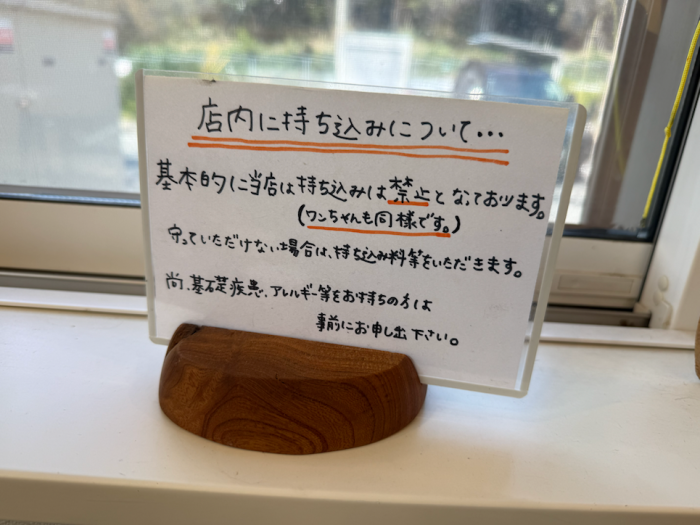 店内に持ち込みについて...
基本的に当店は持ち込みは禁止となっております。
(ワンちゃんも同様です。)
守っていただけない場合は、持ち込み料等をいただきます。
尚、基礎疾患、アレルギー等をお持ちの方は
事前にお申し出下さい。